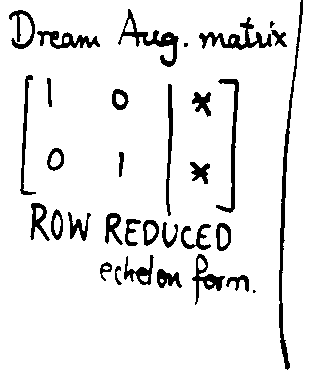 Dream Aug. matrix
1 0 | *
0 1 | *
ROW REDUCED
echelon form.